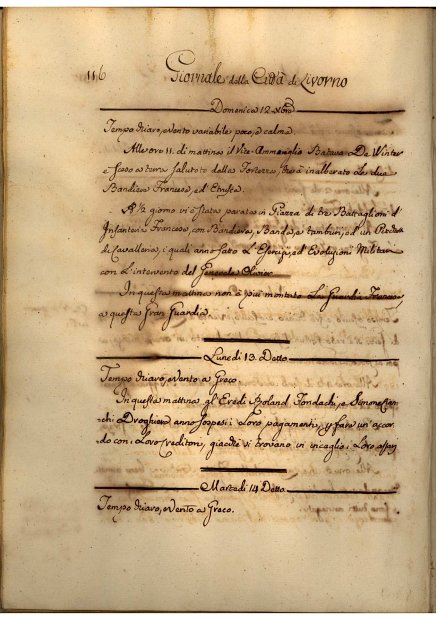 116 Giornale della Città di Livorno
Domenica 12 Xbre
Tempo chiaro, e vento variabile poco, e calma.
Alle ore 11. di mattina il Vice-Ammiraglio Batavo De Winter
è sceso a terra salutato dalla Fortezza, che à inalberato le due
Bandiere Francese, ed Etrusca.
A ½ giorno vi è stata parata in Piazza di tre Battaglioni d'
Infanteria Francese, con Bandiera, Banda, e tamburi, ed un
di Cavalleria, i quali anno fatto l'Esercizi, ed Evoluzioni Militari
con l'intervento del Generale Olivier.
In questa mattina non à più montato la Guardia Francese
a questa Gran Guardia.
Lunedì 13. Detto
Tempo chiaro, e Vento a Greco
In questa mattina gl'Eredi Boland Fondachi, e
Droghiere anno sospesi i Loro pagamenti, p fare un'accor
do con i Loro Creditori, giacché si trovano in incaglio i Loro
Martedì 14 Detto
Tempo chiaro, e Vento a Greco.